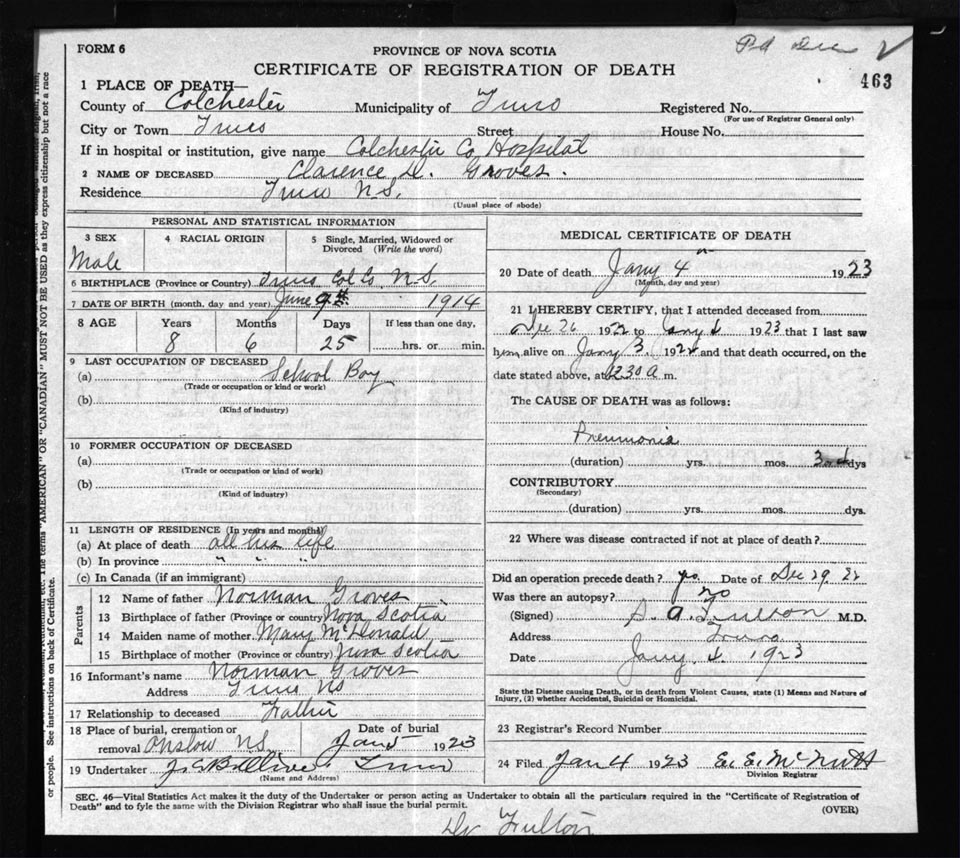 FORM 6
PROVINCE OF NOVA SCOTIA
CERTIFICATE OF REGISTRATION OF DEATH
463
1 PLACE OF DEATH—
County of Colchester Municipality of Truro Registered No.
(For use of Registrar General only)
City or Town Truro Street House No.
If in hospital or institution, give name Colchester Co. Hospital
2 NAME OF DECEASED Clarence D. Groves.
Residence Truro N.S.
(Usual place of abode)
PERSONAL AND STATISTICAL INFORMATION
3 SEX 4 RACIAL ORIGIN 5 Single, Married, Widowed or Divorced (Write the word)
Male
6 BIRTHPLACE (Province or Country) Truro Col Co. N.S.
7 DATE OF BIRTH (month, day and year) June 9th 1914
8 AGE Years Months Days If less than one day,
8 6 25 hrs. or min.
9 LAST OCCUPATION OF DECEASED
(a) School Boy
(Trade or occupation or kind or work)
(b)
(Kind of industry)
10 FORMER OCCUPATION OF DECEASED
(a)
(Trade or occupation or kind of work)
(b)
(Kind of industry)
11 LENGTH OF RESIDENCE (In years and months)
(a) At place of death all his life
(b) In province " " "
(c) In Canada (if an immigrant)
Parents
12 Name of father Norman Groves
13 Birthplace of father (Province or country) Nova Scotia
14 Maiden name of mother Mary McDonald
15 Birthplace of mother (Province or country) Nova Scotia
16 Informant's name Norman Groves
Address Truro NS
17 Relationship to deceased Father
18 Place of burial, cremation or removal Onslow N.S. Date of burial Jan 5 1923
19 Undertaker Truro
(Name and Address)
MEDICAL CERTIFICATE OF DEATH
20 Date of death Jany 4 1923
(Month, day and year)
21 I HEREBY CERTIFY, that I attended deceased from
Dec 26 1922 to Jany 4 1923 that I last saw
him alive on Jany 3. 1922 and that death occurred, on the
date stated above, at 12 30 a m.
The CAUSE OF DEATH was as follows:
Pneumonia
(duration) yrs. mos. 3 dys
CONTRIBUTORY
(Secondary)
(duration) yrs. mos. dys.
22 Where was disease contracted if not at place of death?
Did an operation precede death? yes. Date of Dec 29 22
Was there an autopsy? no
(Signed) S. A. Fulton M.D.
Address Truro
Date Jany. 4 1923
State the Disease causing Death, or in death from Violent Causes, state (1) Means and Nature of
Injury, (2) whether Accidental, Suicidal or Homicidal.
23 Registrar's Record Number
24 Filed Jan 4 1923 E. E. McNutt
Division Registrar
SEC. 46—Vital Statistics Act makes it the duty of the Undertaker or person acting as Undertaker to obtain all the particulars required in the "Certificate of Registration of
Death" and to fyle the same with the Division Registrar who shall issue the burial permit.
(OVER)
Dr Fulton
or people. See instructions on back of Certificate. The terms "AMERICAN" OR "CANADIAN" MUST NOT BE USED as they express citizenship but not a race